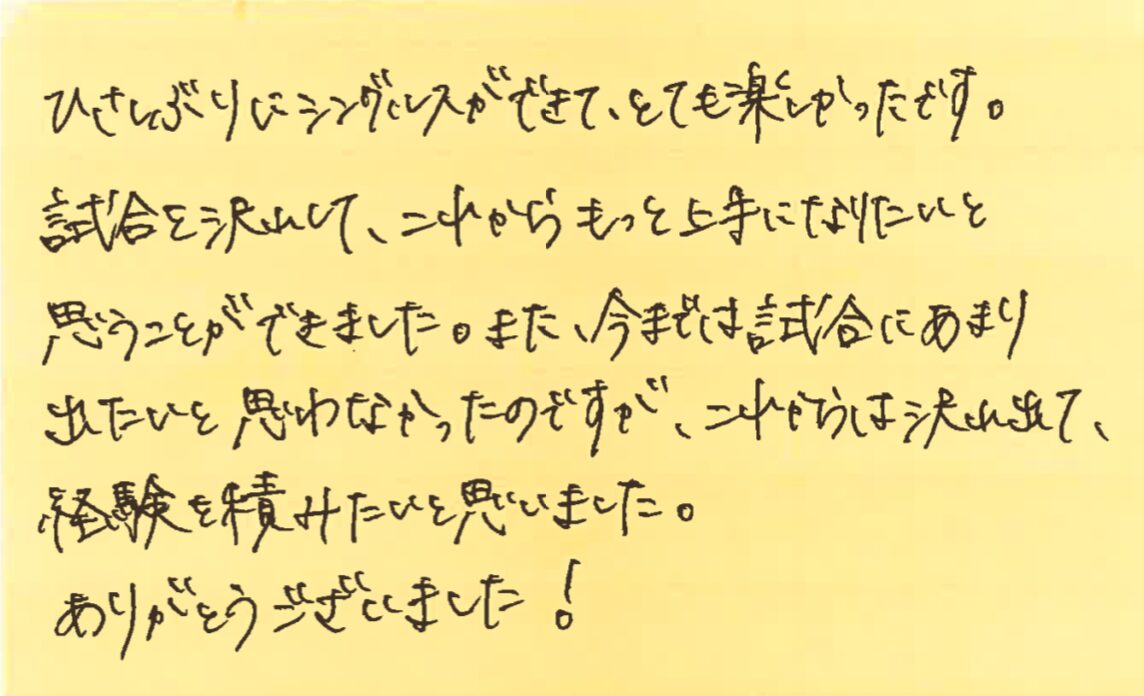 ひさしぶりにシングルスができて、とても楽しかったです。
試合を沢山して、これからもっと上手になりたいと
思うことができました。また、今までは試合にあまり
出たいと思わなかったのですが、これからは沢山出て、
経験を積みたいと思いました。
ありがとうございました!